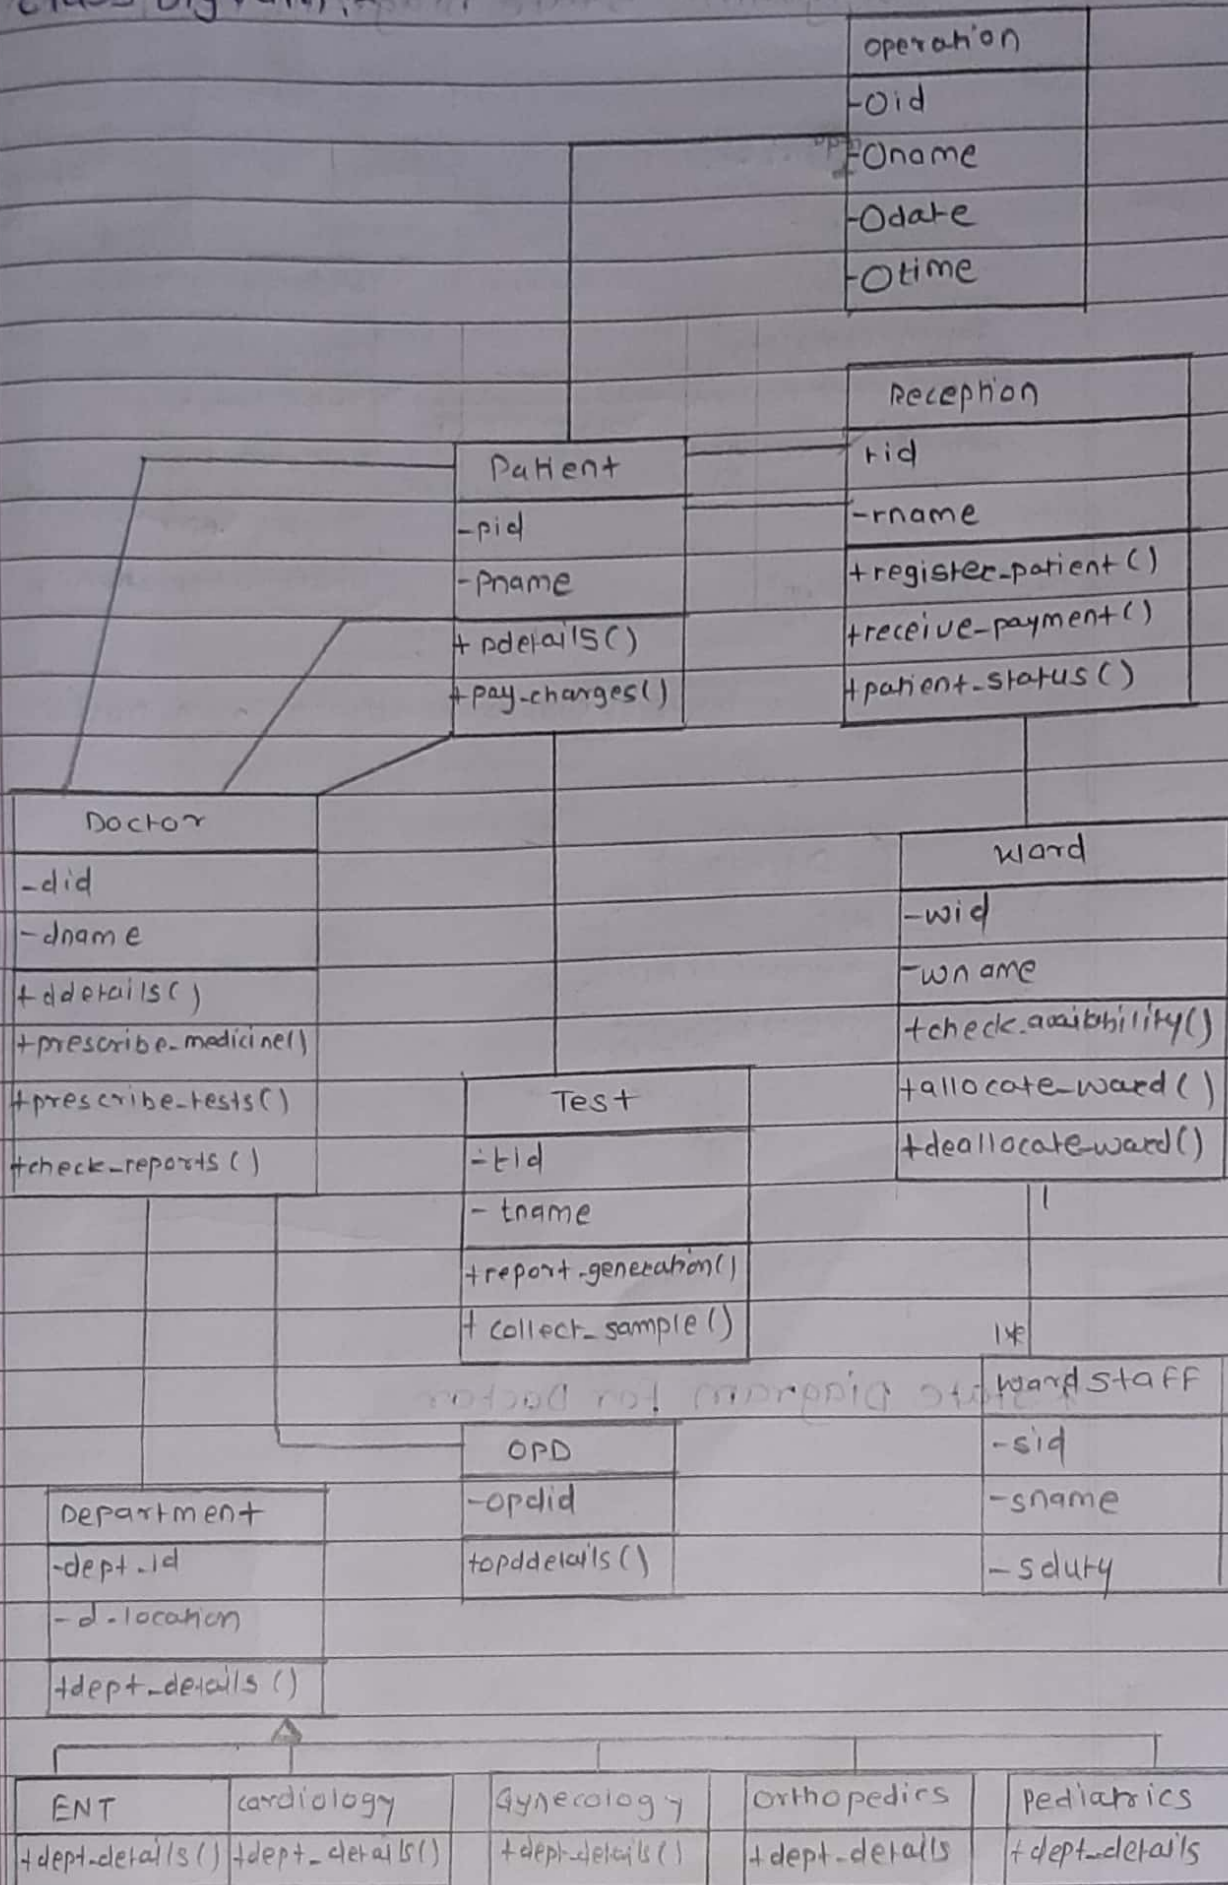 class Diagram:
operation
-Oid
-Oname
-Odate
-Otime
Reception
rid
-rname
+register_patient()
+receive_payment()
+patient_status()
Patient
-pid
-Pname
+ pdetails()
+pay_charges()
Doctor
-did
-dname
+ddetails()
+prescribe_medicine()
+prescribe_tests()
+check_reports()
Ward
-wid
-wname
+check_avaibility()
+allocate_ward()
+deallocate_ward()
Test
-tid
- tname
+report_generation()
+ collect_sample()
1
1*
ward staff
-sid
-sname
-sduty
State Diagram for Doctor
OPD
-opdid
+opddetails()
Department
-dept_id
-d_location
+dept_details()
ENT
+dept_details()
cardiology
+dept_details()
Gynecology
+dept_details()
Orthopedics
+dept_details
pediatrics
+dept_details